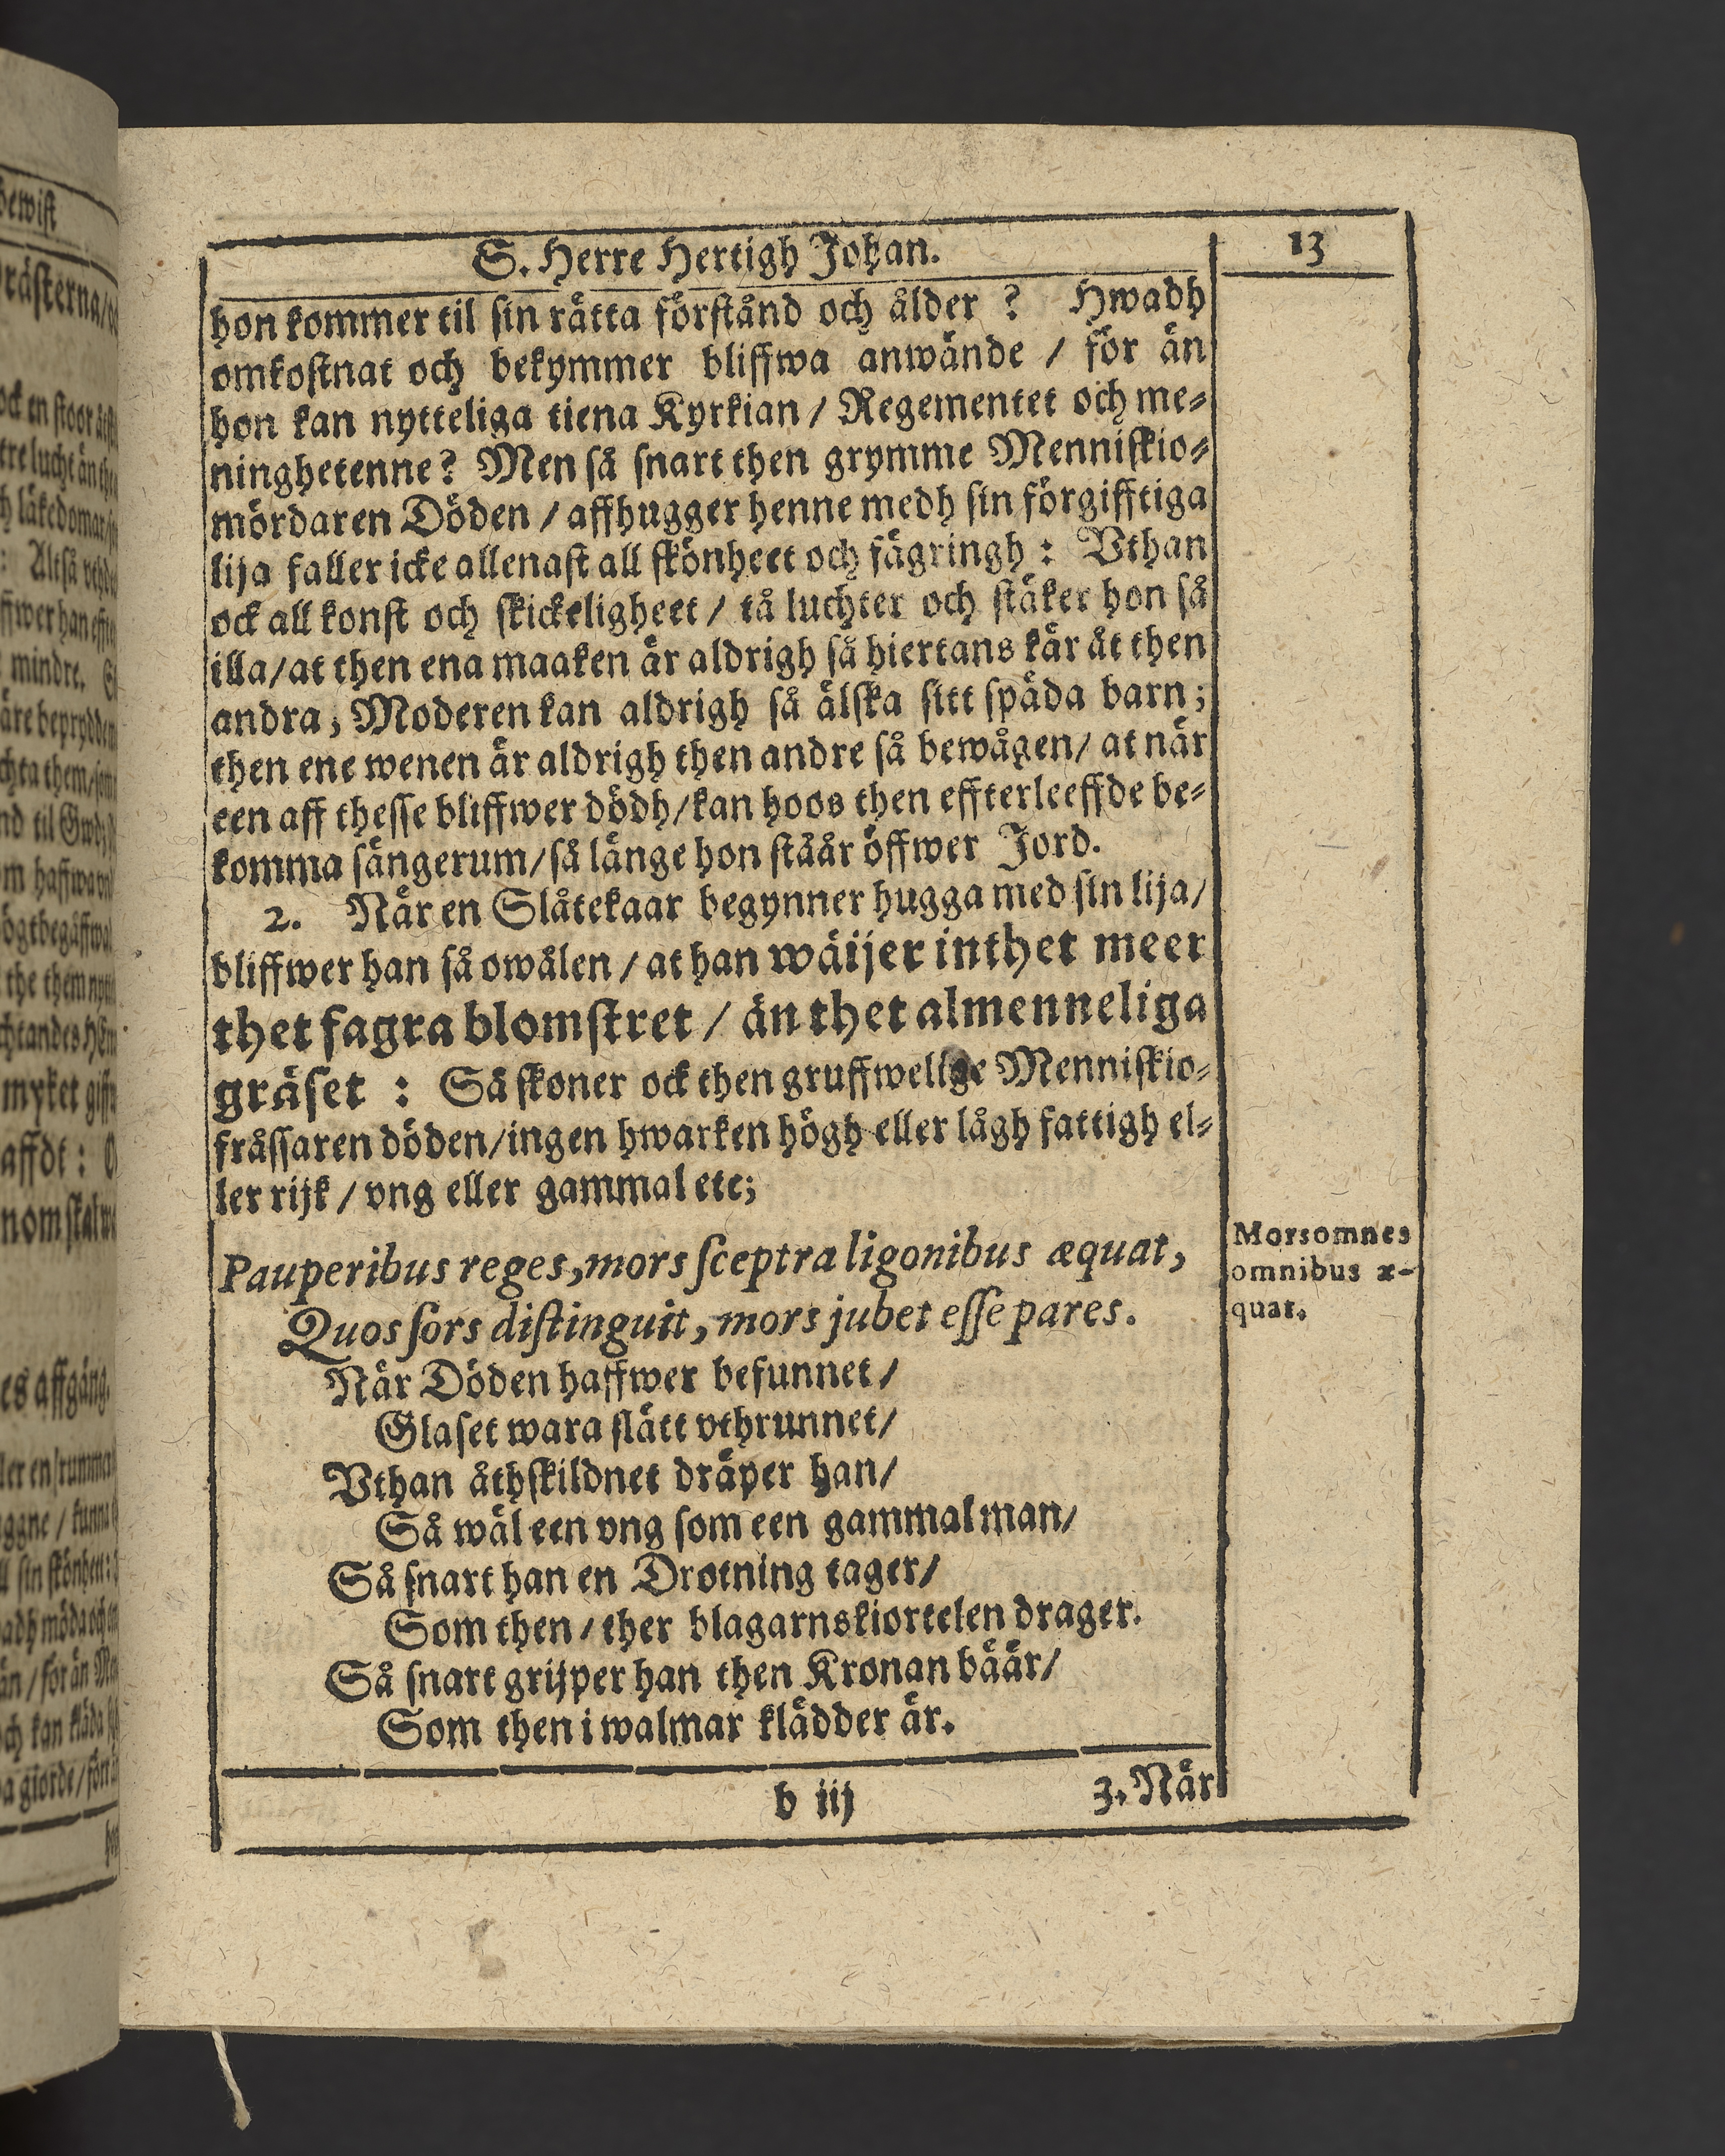 S. Herre Hertigh Johan.
13
hon kommer til sin rätta förstånd och ålder ? Hwadh
omkostnat och bekymmer bliffwa anwände / för än
hon kan nytteliga tiena Kyrkian / Regementet och me-
ninghetenne? Men så snart then grymme Menniskio-
mördaren Döden / affhugger henne medh sin förgifftiga
lija faller icke allenast all skönheet och fägringh : Vthan
ock all konst och skickeligheet / tå luchter och stäker hon så
illa/at then ena maaken är aldrigh så hiertans kär åt then
andra; Moderen kan aldrigh så älska sitt späda barn;
then ene wenen är aldrigh then andre så bewågen/ at när
een aff thesse bliffwer dödh/kan hoos then effterleeffde be-
komma sängerum/så länge hon stäär öffwer Jord.
2. När en Slåtekaar begynner hugga med sin lija/
bliffwer han så owålen / at han wäijer inthet meer
thet fagra blomstret / än thet almenneliga
gräset : Så skoner ock then gruffwelige Menniskio-
fråssaren döden/ingen hwarken högh eller lågh fattigh el-
ler rijk / vng eller gammal etc;
Pauperibus reges, mors sceptra ligonibus æquat,
Quos sors distinguit, mors jubet esse pares.
Morsomnes
omnibus æ-
quat.
När Döden haffwer befunnet/
Glaset wara slätt vthrunnet/
Vthan åthskildnet dräper han/
Så wäl een vng som een gammal man/
Så snart han en Drotning tager/
Som then / ther blagarnskiortelen drager.
Så snart grijper han then Kronan bäär/
Som then i walmar klädder är.
b iij
3. När